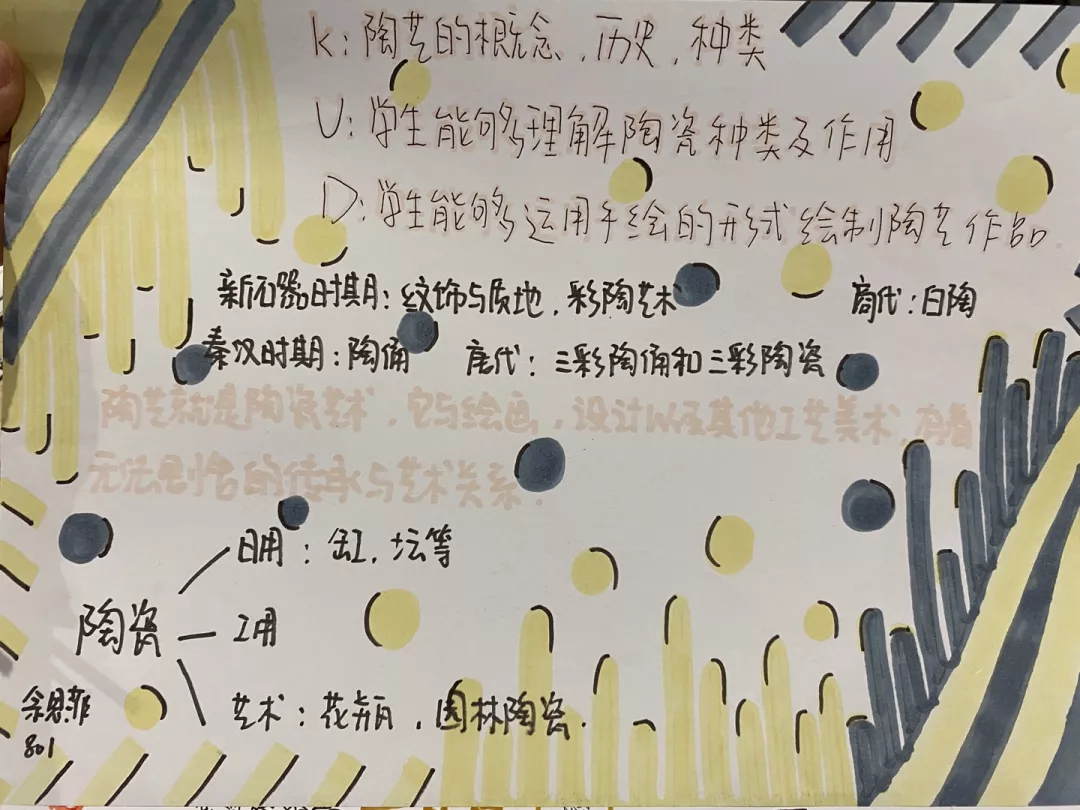 K:陶艺的概念、历史、种类
U:学生能够理解陶瓷种类及作用
D:学生能够运用手绘的形式绘制陶艺作品
新石器时期:纹饰与质地,彩陶艺术 商代:白陶
秦汉时期:陶俑 唐代:三彩陶俑和三彩陶瓷
陶艺就是陶瓷艺术,它与绘画,设计以及其他工艺美术,有着
无法割舍的传承与艺术关系.
日用:缸,坛等
陶瓷 工用
艺术:花瓶,园林陶瓷.
余思菲
801